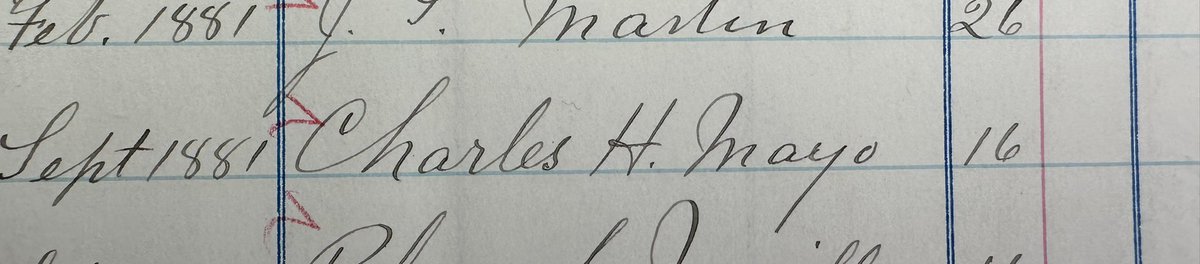 Feb. 1881 J. Martin 26
Sept 1881 Charles H. Mayo 16